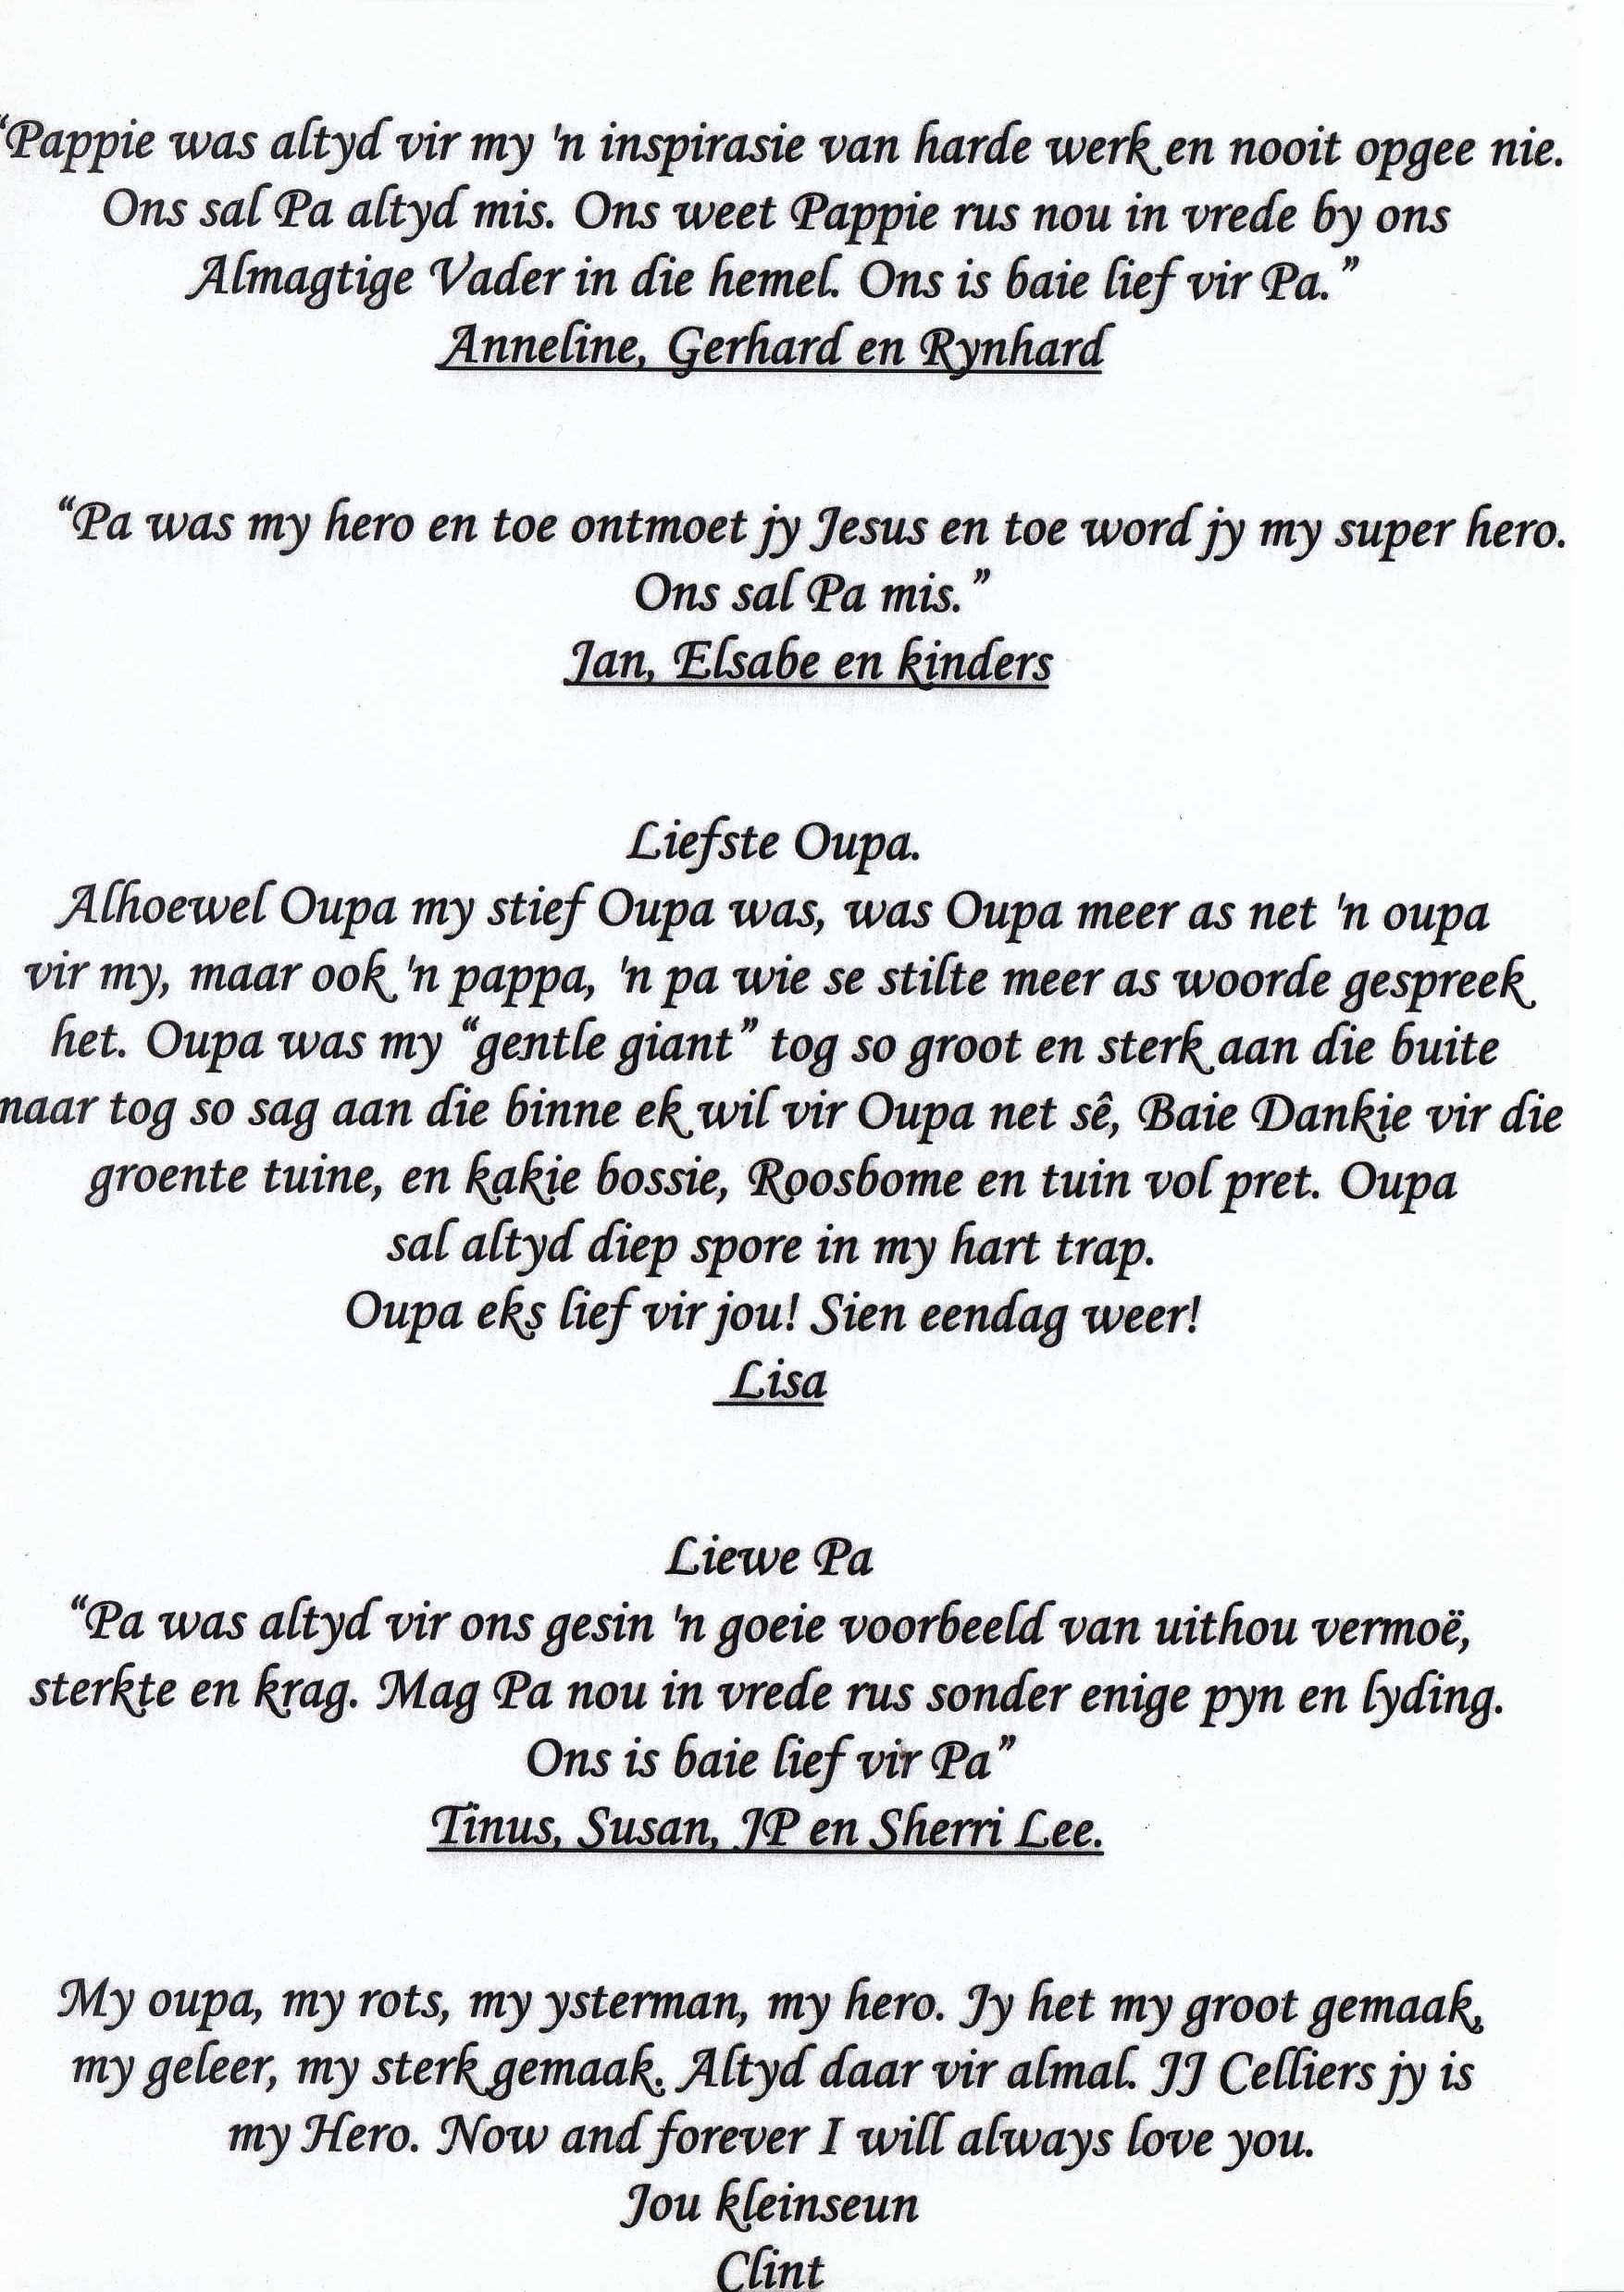 “Pappie was altyd vir my 'n inspirasie van harde werk en nooit opgee nie.
Ons sal Pa altyd mis. Ons weet Pappie rus nou in vrede by ons
Almagtige Vader in die hemel. Ons is baie lief vir Pa.”
Anneline, Gerhard en Rynhard
“Pa was my hero en toe ontmoet jy Jesus en toe word jy my super hero.
Ons sal Pa mis.”
Jan, Elsabe en kinders
Liefste Oupa.
Alhoewel Oupa my stief Oupa was, was Oupa meer as net 'n oupa
vir my, maar ook 'n pappa, 'n pa wie se stilte meer as woorde gespreek
het. Oupa was my “gentle giant” tog so groot en sterk aan die buite
maar tog so sag aan die binne ek wil vir Oupa net sê, Baie Dankie vir die
groente tuine, en kakie bossie, Roosbome en tuin vol pret. Oupa
sal altyd diep spore in my hart trap.
Oupa eks lief vir jou! Sien eendag weer!
Lisa
Liewe Pa
“Pa was altyd vir ons gesin 'n goeie voorbeeld van uithou vermoë,
sterkte en krag. Mag Pa nou in vrede rus sonder enige pyn en lyding.
Ons is baie lief vir Pa”
Tinus, Susan, JP en Sherri Lee.
My oupa, my rots, my ysterman, my hero. Jy het my groot gemaak,
my geleer, my sterk gemaak. Altyd daar vir almal. JJ Celliers jy is
my Hero. Now and forever I will always love you.
Jou kleinseun
Clint